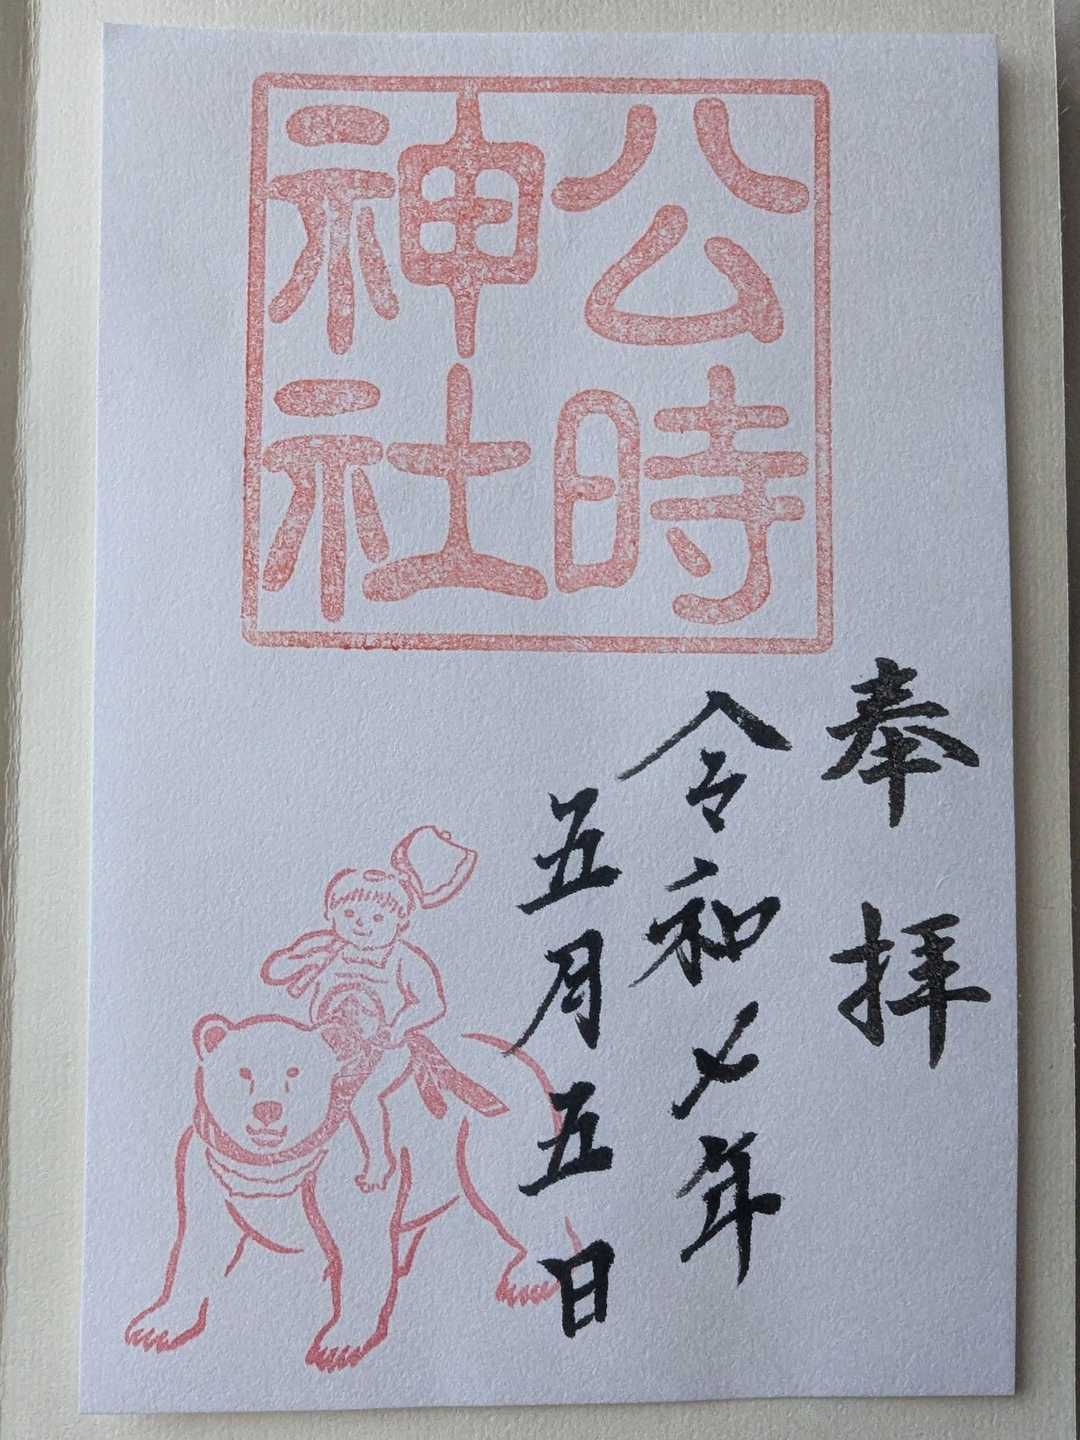 公時
神社
奉拝
令和七年
五月五日